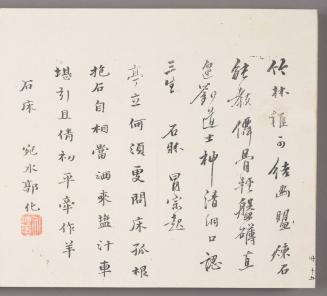 竹林誰可結幽盟煉石
能教傳骨輕盤礴直
邀劉道士神清洞口認
三生 石牀 冒宗起
亭立何須更問床孤根
抱石自相當洒來鹽汁車
堪引且倩初平牽作羊
石床 宛水郭化